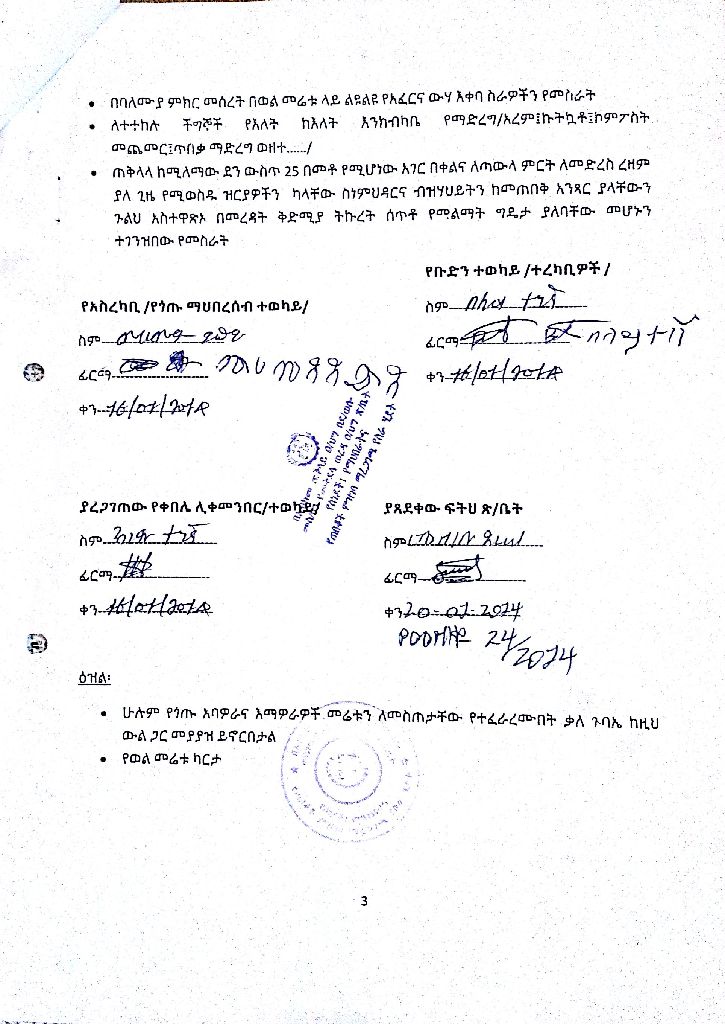 • በባለሙያ ምክር መሰረት በወል መሬቱ ላይ ልዩልዩ የአፈርና ውሃ እቀባ ስራዎችን የመስራት
• ለተተከሉ ችግኞች የእለት ከእለት እንክብካቤ የማድረግ/አረም፤ኩትኳቶ፤ኮምፖስት
መጨመር፤ጥበቃ ማድረግ ወዘተ....../
• ጠቅላላ ከሚለማው ደን ውስጥ 25 በመቶ የሚሆነው አገር በቀልና ለጣውላ ምርት ለመድረስ ረዘም
ያለ ጊዜ የሚወስዱ ዝርያዎችን ካላቸው ስነምህዳርና ብዝሃህይትን ከመጠበቅ አንጻር ያላቸውን
ጉልህ አስተዋጽኦ በመረዳት ቅድሚያ ትኩረት ሰጥቶ የመልማት ግዴታ ያለባቸው መሆኑን
ተገንዝበው የመስራት
የቡድን ተወካይ /ተረካቢዎች /
የአስረካቢ /የጎጡ ማህበረሰብ ተወካይ/
ስም
ስም
ፊርማ
ፊርማ
ቀን 16/01/2014
ቀን 16/01/2014
ያረጋገጠው የቀበሌ ሊቀመንበር/ተወካይ/
ያጸደቀው ፍትህ ጽ/ቤት
ስም
ስም
ፊርማ
ፊርማ
ቀን 16/01/2014
ቀን 20-01-2014
24/2014
ዕዝል፡
• ሁሉም የጎጡ አባዎራና እማዎራዎች መሬቱን ለመስጠታቸው የተፈራረሙበት ቃለ ጉባኤ ከዚህ
ውል ጋር መያያዝ ይኖርበታል
• የወል መሬቱ ካርታ
3